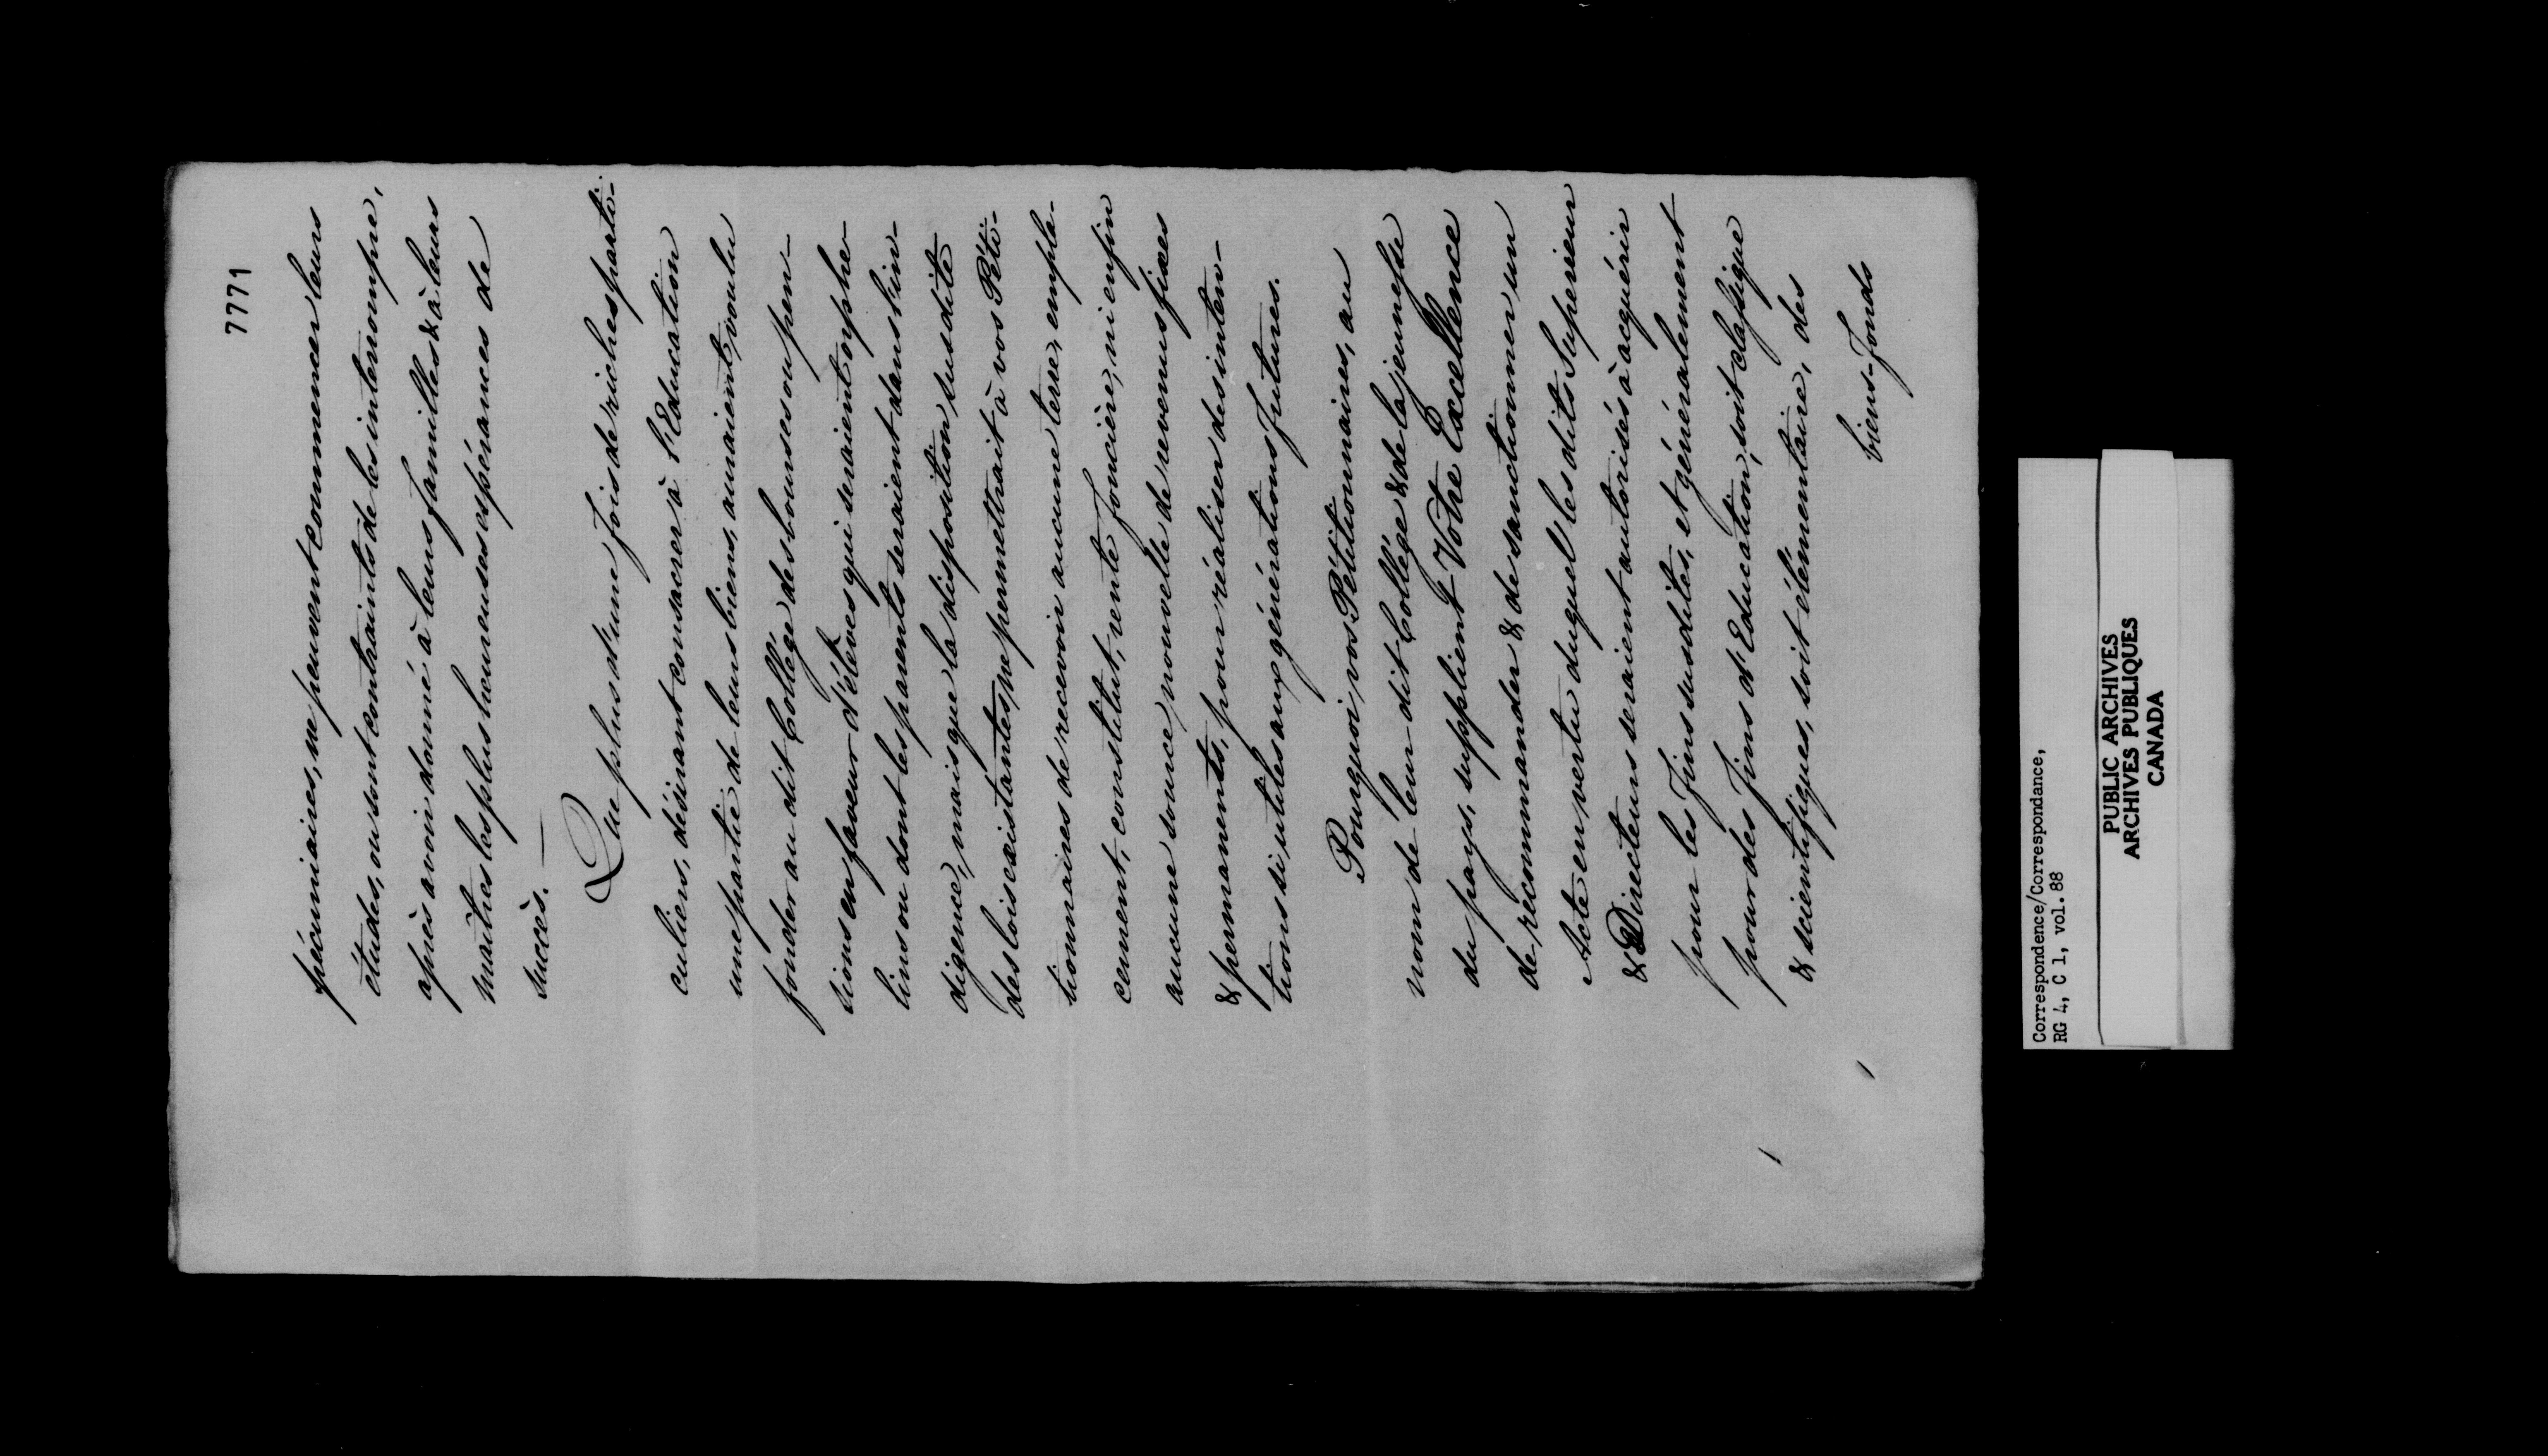 7771
pécuniaires, ne peuvent commencer leurs
études, ou sont contraints de les interrompre,
après avoir donné à leurs familles & à leurs
maîtres les plus heureuses espérances de
succès. —
Que plus d'une fois de riches parti-
culiers, désirant consacrer à l'Education
une partie de leurs biens, auraient voulu
fonder au dit Collége des bourses ou pen-
sions en faveur d'élèves qui seraient orphe-
lins ou dont les parents seraient dans l'in-
digence, mais que la disposition susdite
des lois existantes, ne permettrait à vos Péti-
tionnaires de recevoir aucune terre, empla-
cement, constitut, rente foncière, ni enfin
aucune source nouvelle de revenus fixes
& permanents, pour réaliser des inten-
tions si utiles aux générations futures.
Pourquoi vos Pétitionnaires, au
nom de leur dit Collége & de la jeunesse
du pays, supplient Votre Excellence
de recommander & de sanctionner un
Acte en vertu duquel les dits Superieur
& Directeurs seraient autorisés à acquérir
pour les fins susdites, et généralement
pour des fins d'Education, soit classique
& scientifiques, soit élémentaire, des
biens-fonds
Correspondence/Correspondance,
RG 4, C 1, vol. 88
PUBLIC ARCHIVES
ARCHIVES PUBLIQUES
CANADA